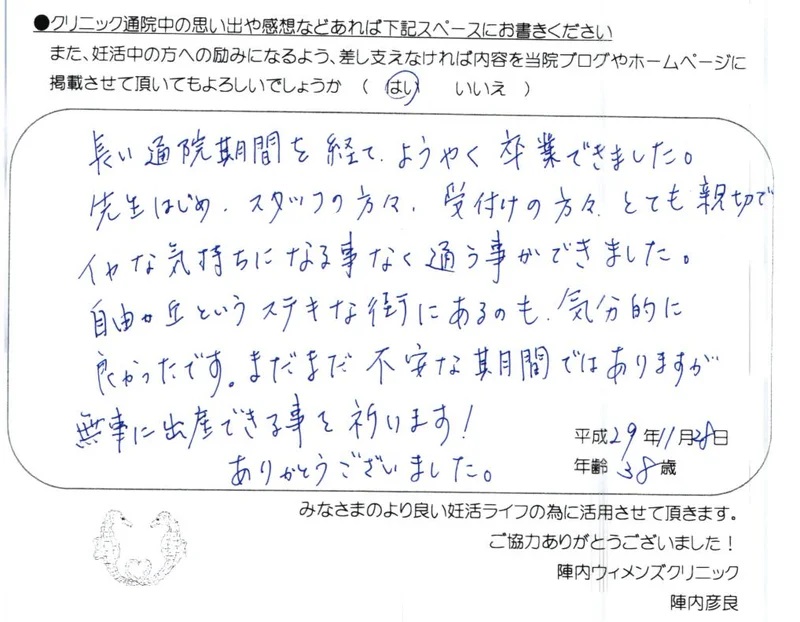 ●クリニック通院中の思い出や感想などあれば下記スペースにお書きください
また、妊活中の方への励みになるよう、差し支えなければ内容を当院ブログやホームページに
掲載させて頂いてもよろしいでしょうか （ はい　　いいえ ）
長い通院期間を経て、ようやく卒業できました。
先生はじめ、スタッフの方々、受付けの方々、とても親切で
イヤな気持ちになる事なく通う事ができました。
自由が丘というステキな街にあるのも、気分的に
良かったです。まだまだ不安な期間ではありますが
無事に出産できる事を祈います！
ありがとうございました。
平成29年11月28日
年齢 38歳
みなさまのより良い妊活ライフの為に活用させて頂きます。
ご協力ありがとうございました！
陣内ウィメンズクリニック
陣内彦良